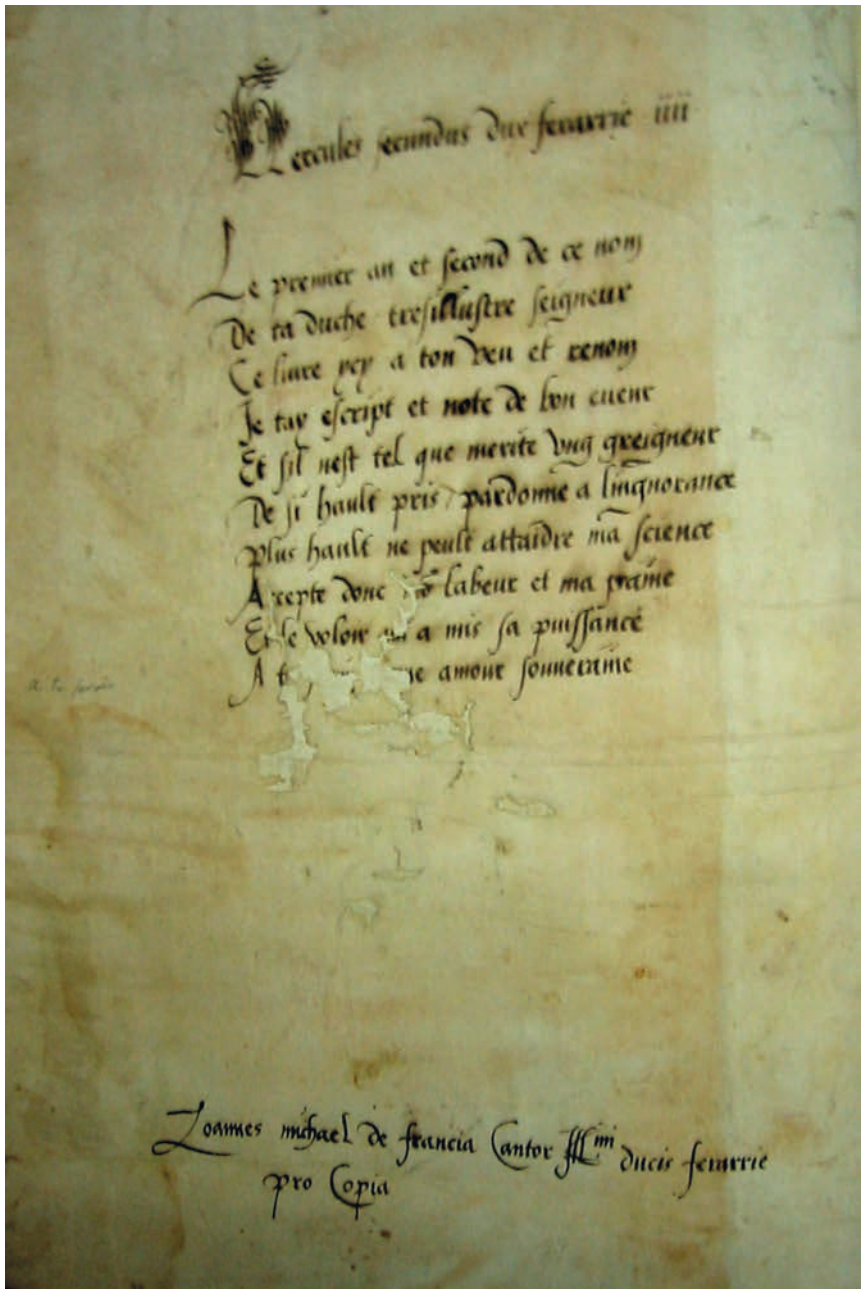 Hercules secundus dux ferarrie iiii
Le premier an et second de ce nom
De ta duche tresillustre seigneur
Ce livre yey a ton veu et renom
Je tay escript et note de bon cueur
Et sil nest tel que merite ung greigneur
De si hault pris pardonne a lingnorance
Plus hault ne peult attaidre ma science
Accepte donc labeur et ma peaine
Et le voloir a mis sa puissance
A amour souveraine
Ioannes michael de francia Cantor Illmi ducis ferarrie
pro Copia